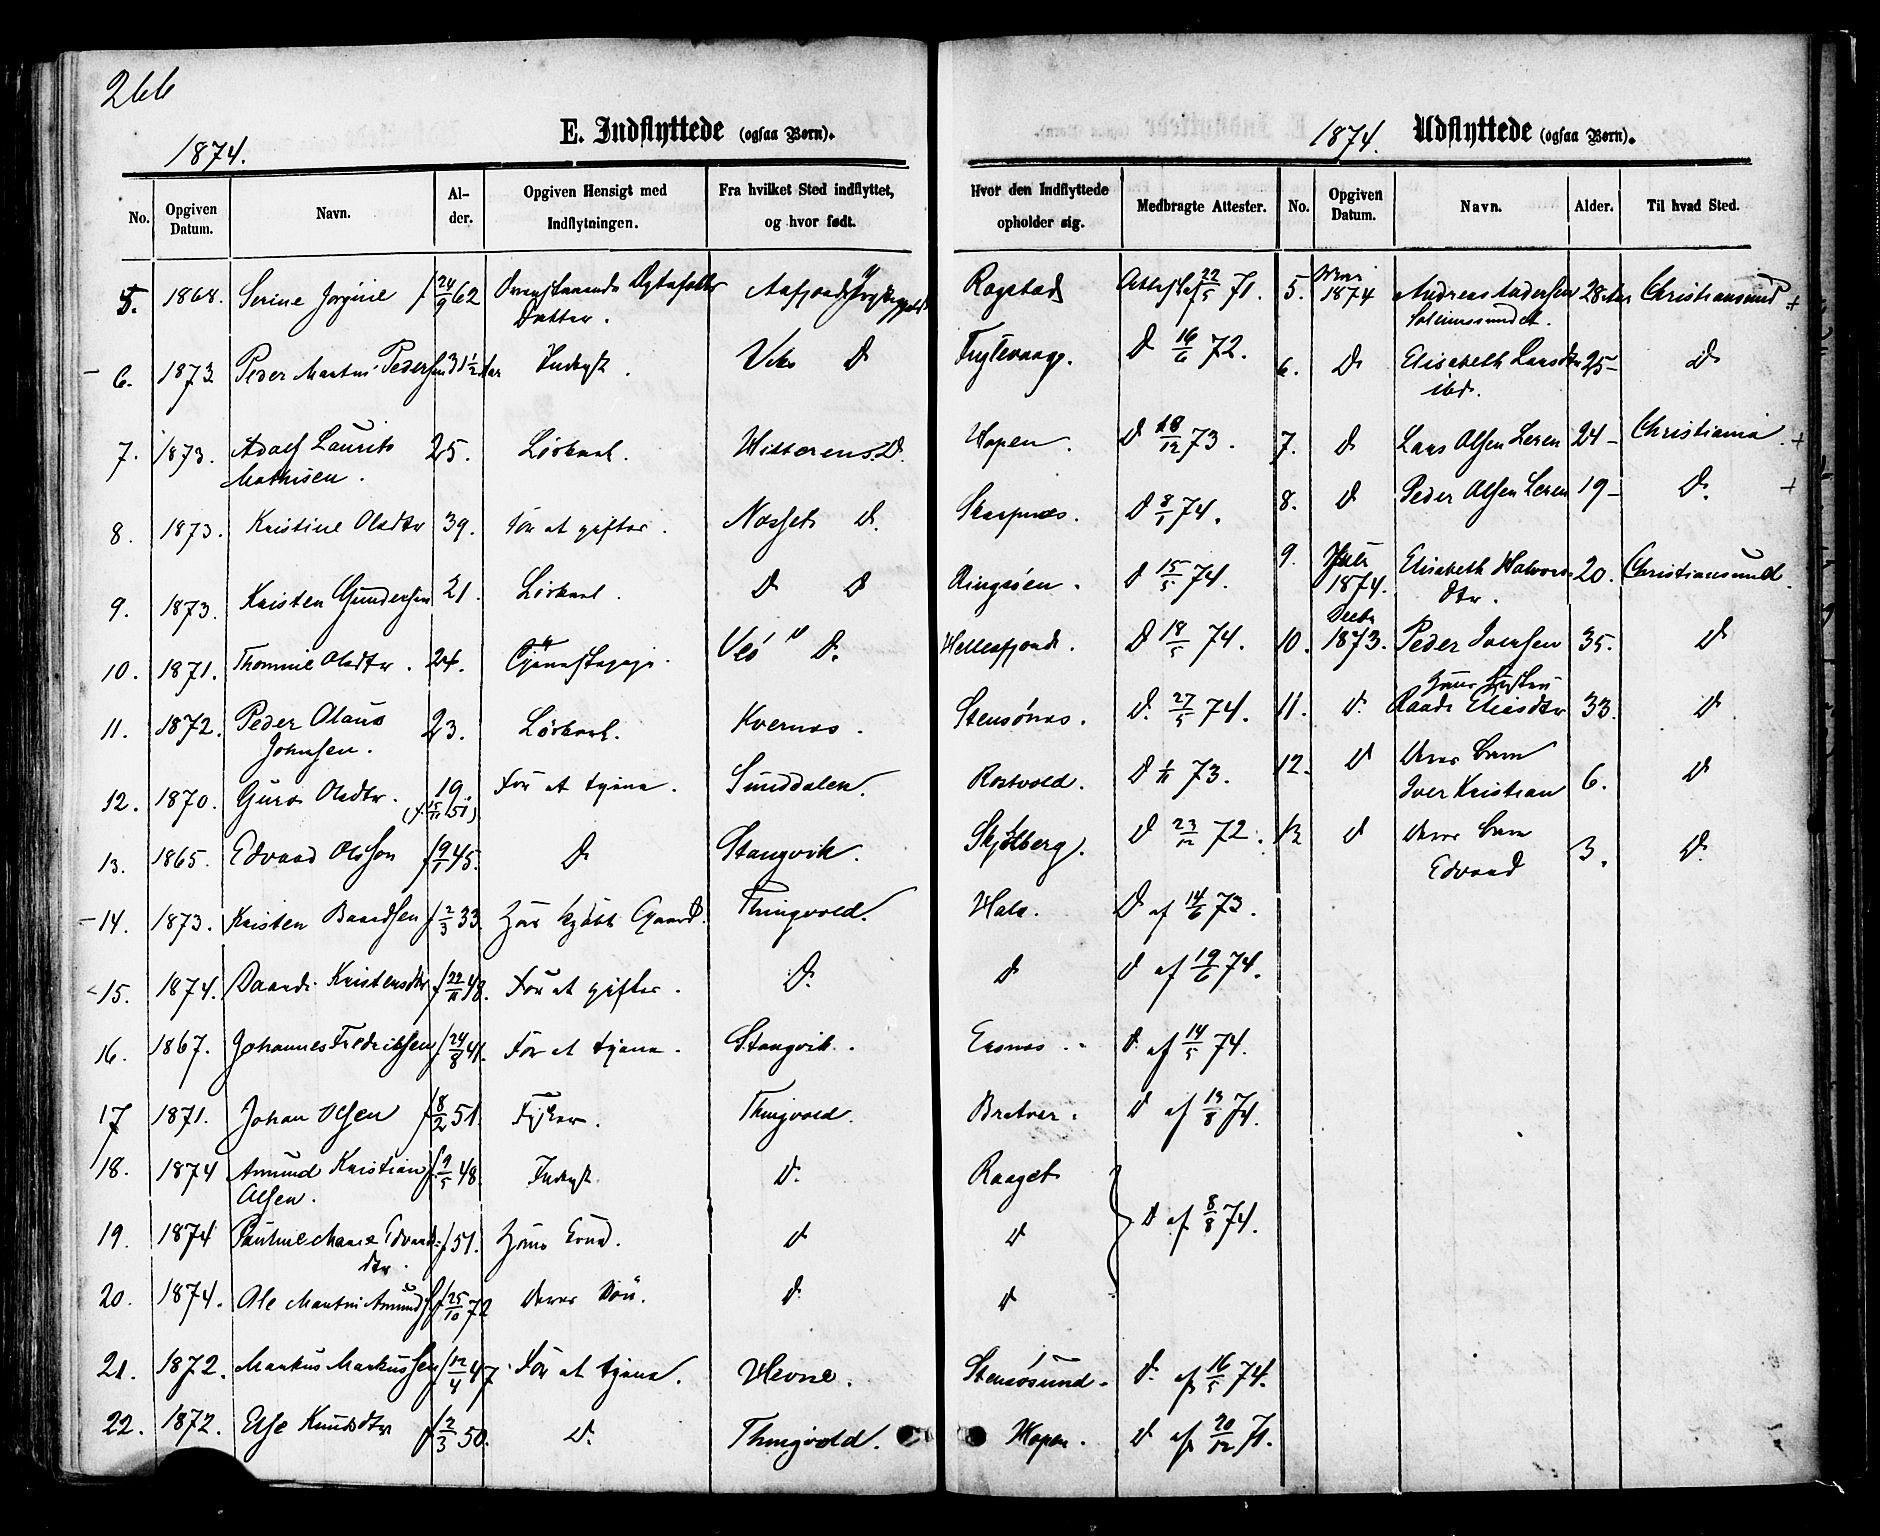 266
1874.
E. Indflyttede (ogsaa Børn).
1874.
Udflyttede (ogsaa Børn).
No. Opgiven Datum. Navn. Alder. Opgiven Hensigt med Indflytningen. Fra hvilket Sted indflyttet, og hvor født. Hvor den Indflyttede opholder sig. Medbragte Attester.
No. Opgiven Datum. Navn. Alder. Til hvad Sted.
5. 1868. Serine Jorgine f 24/9 62 Datter. Ragstad 22/5 71.
6. 1873 Peder Martin Pedersen 31 1/2 Aar Inderst. D D 16/6 72.
7. 1873. Adolf Laurits 25. Løskarl. Hitterens D. Hopen. D 18/12 73.
Mathisen.
8. 1873. Kristine Olsdtr 39. for at giftes. Nesset D. Skarpnes. D 8/1 74.
9. 1873. Kristen Gundersen 21. Løskarl. D D Ringsøen. D 15/5 74.
10. 1871. Thomine Olsdtr. 24. Tjenestepige. Veø D. Hellesfjord. D 18/5 74.
11. 1872. Peder Olaus 23. Løskarl. Kvernes. Stensønes. D. 27/5 74.
Johnsen.
12. 1870. Guro Olsdtr. 19. For at tjene. Sunddalen. Rostvold. D 1/11 73.
(f. 15/11 51)
13. 1865. Edvard Olsson f 9/1 45. D Stangvik. Skjølberg. D 23/12 72.
14. 1873. Kristen Baardsen f 2/3 33. Har kjøbt Gaard. Thingvold. Hals. D af 14/6 73.
15. 1874. Kristensdtr f 22/11 48. For at giftes. D. D D af 19/6 74.
16. 1867. Johannes Fredriksen f 24/8 41. For at tjene. Stangvik. D. af 14/5 74.
17 1871. Johan Olsen f 8/2 51. Fisker. Thingvold. Bratver. D af 13/8 74.
18. 1874 Amund Kristian f 9/5 48. Inderst D. D af 8/8 74.
Olsen.
19. 1874 Pauline Marie Edvards- f 51. Hans Kone. D D
dtr.
20. 1874. Ole Martin Amunds. f 25/10 72 Deres Søn. D. D
21. 1872. Markus Markussen f 12/4 47 For at tjene. Hevne. Stensøsund. D. af 16/5 74.
22. 1872. Else Knudsdtr f 2/3 50. D. Thingvold. Hopen. D af 20/12 71.
5. 1874 Andreas Andersen 28 Aar Christiansund +
6. D Elisabeth Larsdtr 25- D
ibd.
7. D Lars Olsen Leren 24- Christiania. +
8. D Peder Olsen Leren 19- D. +
9. 1874. Elisabeth Halvors- 20. Christiansund.
dtr.
10. Decbr 1873. Peder Iversen 35. D
hans Hustru
11. D. Eliesdtr 33. D
12. D deres Barn
Iver Kristian 6. D
13 D deres Barn
Edvard 3. D.